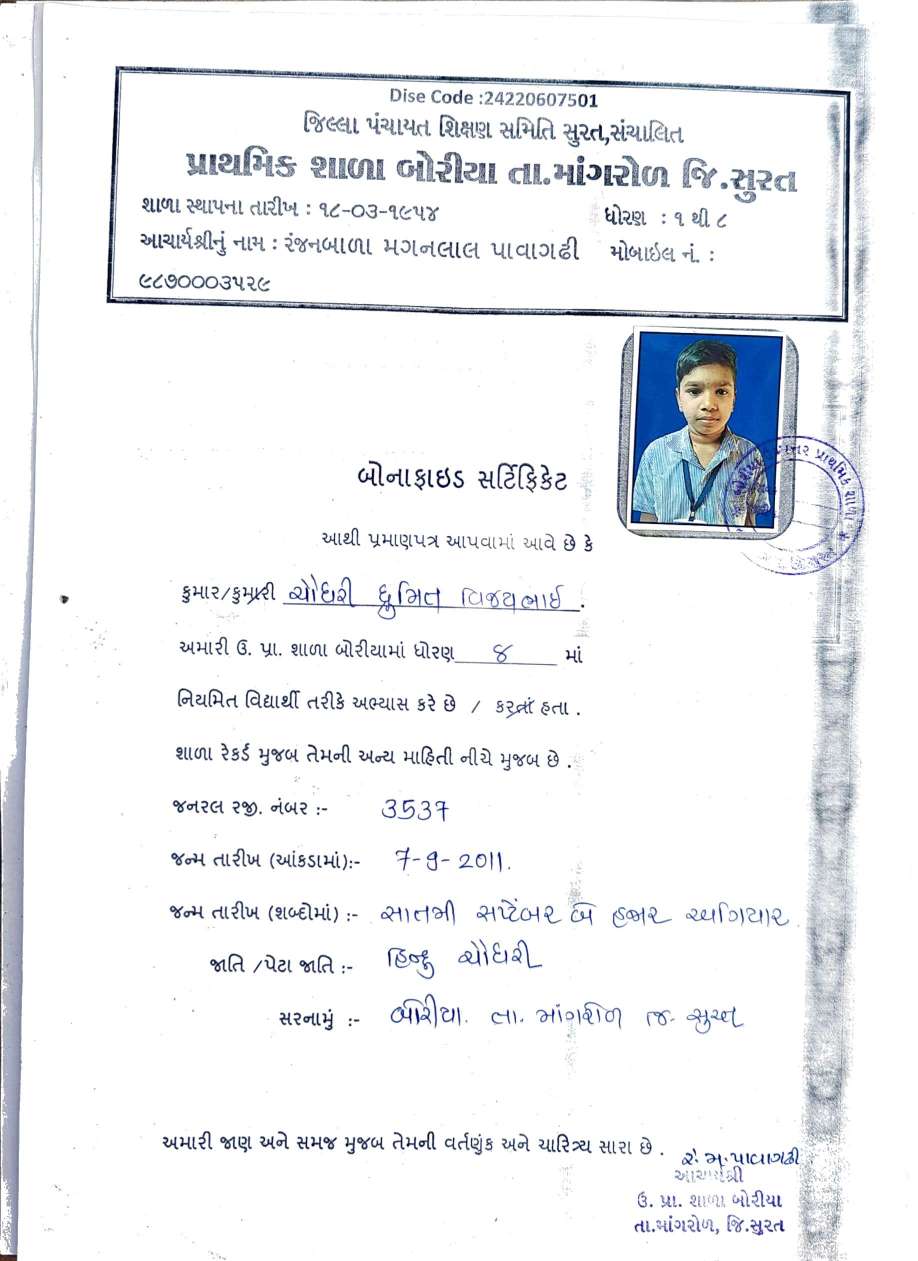 Dise Code :24220607501
જિલ્લા પંચાયત શિક્ષણ સમિતિ સુરત,સંચાલિત
પ્રાથમિક શાળા બોરીયા તા.માંગરોળ જિ.સુરત
શાળા સ્થાપના તારીખ : ૧૮-૦૩-૧૯૫૪ ધોરણ : ૧ થી ૮
આચાર્યશ્રીનું નામ : રંજનબાળા મગનલાલ પાવાગઢી મોબાઇલ નં. :
૯૮૭૦૦૦૩૫૨૯
બોનાફાઇડ સર્ટિફિકેટ
આથી પ્રમાણપત્ર આપવામાં આવે છે કે
કુમાર/કુમારી ચૌધરી ધ્રુમિત વિજયભાઈ .
અમારી ઉ. પ્રા. શાળા બોરીયામાં ધોરણ ૪ માં
નિયમિત વિદ્યાર્થી તરીકે અભ્યાસ કરે છે / કરતાં હતા .
શાળા રેકર્ડ મુજબ તેમની અન્ય માહિતી નીચે મુજબ છે .
જનરલ રજી. નંબર :- 3537
જન્મ તારીખ (આંકડામાં):- 7-9-2011.
જન્મ તારીખ (શબ્દોમાં) :- સાતમી સપ્ટેંબર બે હજાર અગિયાર
જાતિ /પેટા જાતિ :- હિન્દુ ચૌધરી
સરનામું :- બોરીયા. તા. માંગરોળ જિ. સુરત
અમારી જાણ અને સમજ મુજબ તેમની વર્તણુંક અને ચારિત્ર્ય સારા છે .
ર. મ. પાવાગઢી
આચાર્યશ્રી
ઉ. પ્રા. શાળા બોરીયા
તા.માંગરોળ, જિ.સુરત